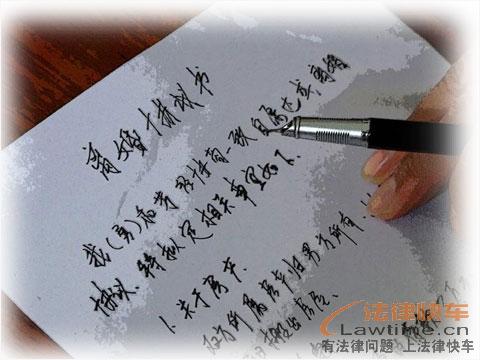 离婚协议书
我(男)和妻 一致自愿达成离婚
协议.特拟定相关事宜如下.
1.关于房产.
双方所属房产归男方所有!!
搬出房屋.
法律快车
Lawtime.cn
有法律问题 上法律快车